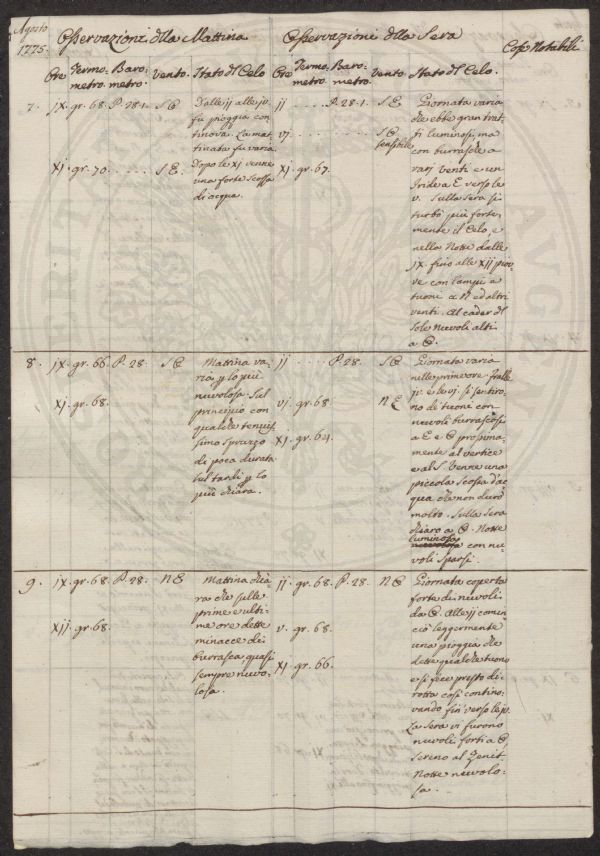 Agosto
1775.
Osservazioni dlla Mattina
Osservazione dlla Sera
Cose Notabili
Ore Termo- Baro- Vento. Stato dl Celo
metro. metro.
Ore Termo- Baro- Vento. Stato dl Celo.
metro. metro.
7. jx. gr. 68. P. 28-1. S O
Dalle jj alle jv.
fu pioggia con
tinova. La mat
tinata fu varia.
Xj. gr. 70. S E.
Dopo le Xj venne
una forte scossa
di acqua.
jj P. 28-1. S E
vj S O
sensibile
Xj. gr. 67.
Giornata varia
che ebbe gran trat
ti luminosi, ma
con burrasche a
varj venti e un
Iride a E verso le
v. Sulla Sera si
turbò più forte-
mente il Celo, e
nella Notte dalle
jx. fino alle Xij piov-
ve con lampi e
tuone a N ed altri
venti. Al cader dl
Sole nuvoli alti
a O.
8. jx. gr. 66. P. 28. S O
Xj. gr. 68.
Mattina va-
ria, p lo più
nuvolosa. Sul
principio con
qualche tenuis
simo spruzzo
di poca durata
sul tardi p lo
più chiara.
jj P. 28. S O
vj. gr. 68 N E
Xj. gr. 64.
Giornata varia
nelle prime ore. Tralle
jv. e le vj. si sentiro-
no di tuone con
nuvoli burrascosi
a E e O prossima-
mente al vertice
e al S. Venne una
piccola scossa d'ac
qua che non durò
molto. Sulla Sera
chiaro a O. Notte
luminosa
nuvolosa con nu-
voli sparsi.
9. jx. gr. 68. P. 28. N E
Xij. gr. 68.
Mattina chia-
ra che sulle
prime e ulti-
me ore dette
minacce di
burrasca quasi
sempre nuvo-
losa.
jj. gr. 68. P. 28. N O
v. gr. 68.
Xj. gr. 66.
Giornata coperta
forte di nuvoli
da O. Alle jj comin
ciò leggermente
una pioggia che
dette qualche tuono
e si fece presto di-
rotta così contino-
vando fin verso le jv.
La Sera vi furono
nuvoli forti a O
sereno al Zenit
Notte nuvolo-
sa.